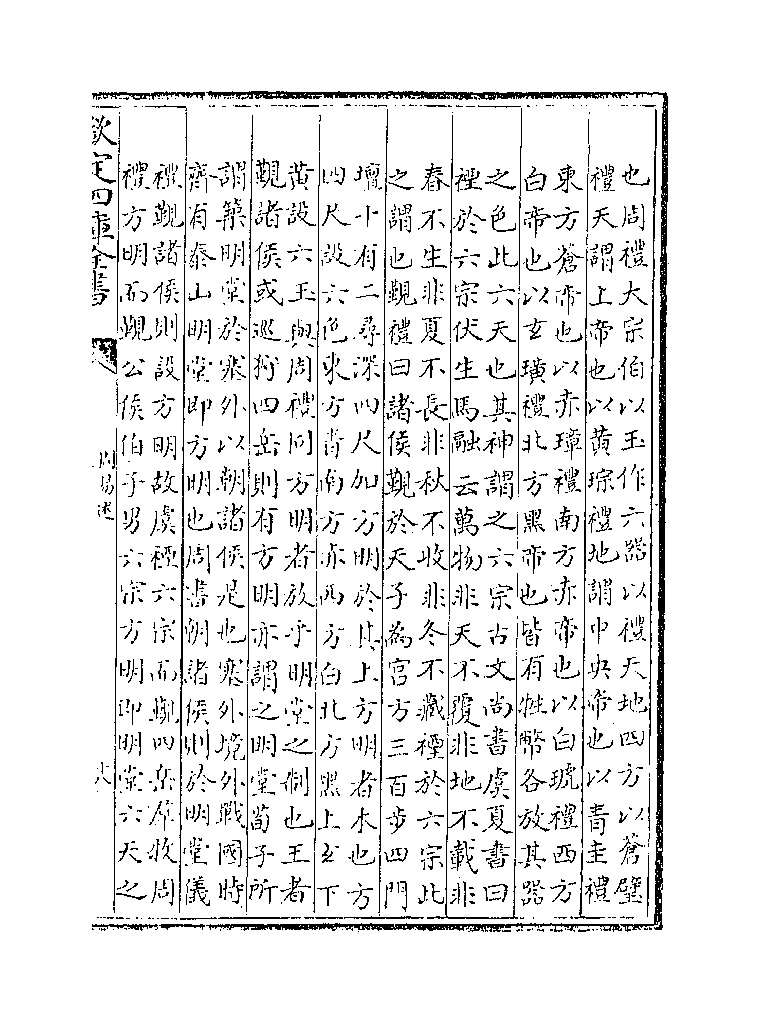 也周禮大宗伯以玉作六器以禮天地四方以蒼璧
禮天謂上帝也以黄琮禮地謂中央帝也以青圭禮
東方蒼帝也以赤璋禮南方赤帝也以白琥禮西方
白帝也以玄璜禮北方黑帝也皆有牲幣各放其器
之色此六天也其神謂之六宗古文尚書虞夏書曰
禋於六宗伏生馬融云萬物非天不覆非地不載非
春不生非夏不長非秋不收非冬不藏禋於六宗此
之謂也覲禮曰諸侯覲於天子為宫方三百步四門
壇十有二尋深四尺加方明於其上方明者木也方
四尺設六色東方青南方赤西方白北方黑上玄下
黄設六玉與周禮同方明者放乎明堂之制也王者
覲諸侯或巡狩四岳則有方明亦謂之明堂荀子所
謂築明堂於塞外以朝諸侯是也塞外境外戰國時
齊有泰山明堂即方明也周書朝諸侯則於明堂儀
禮覲諸侯則設方明故虞禋六宗而覲四岳羣牧周
禮方明而覲公侯伯子男六宗方明即明堂六天之
欽定四庫全書
周易述
十八